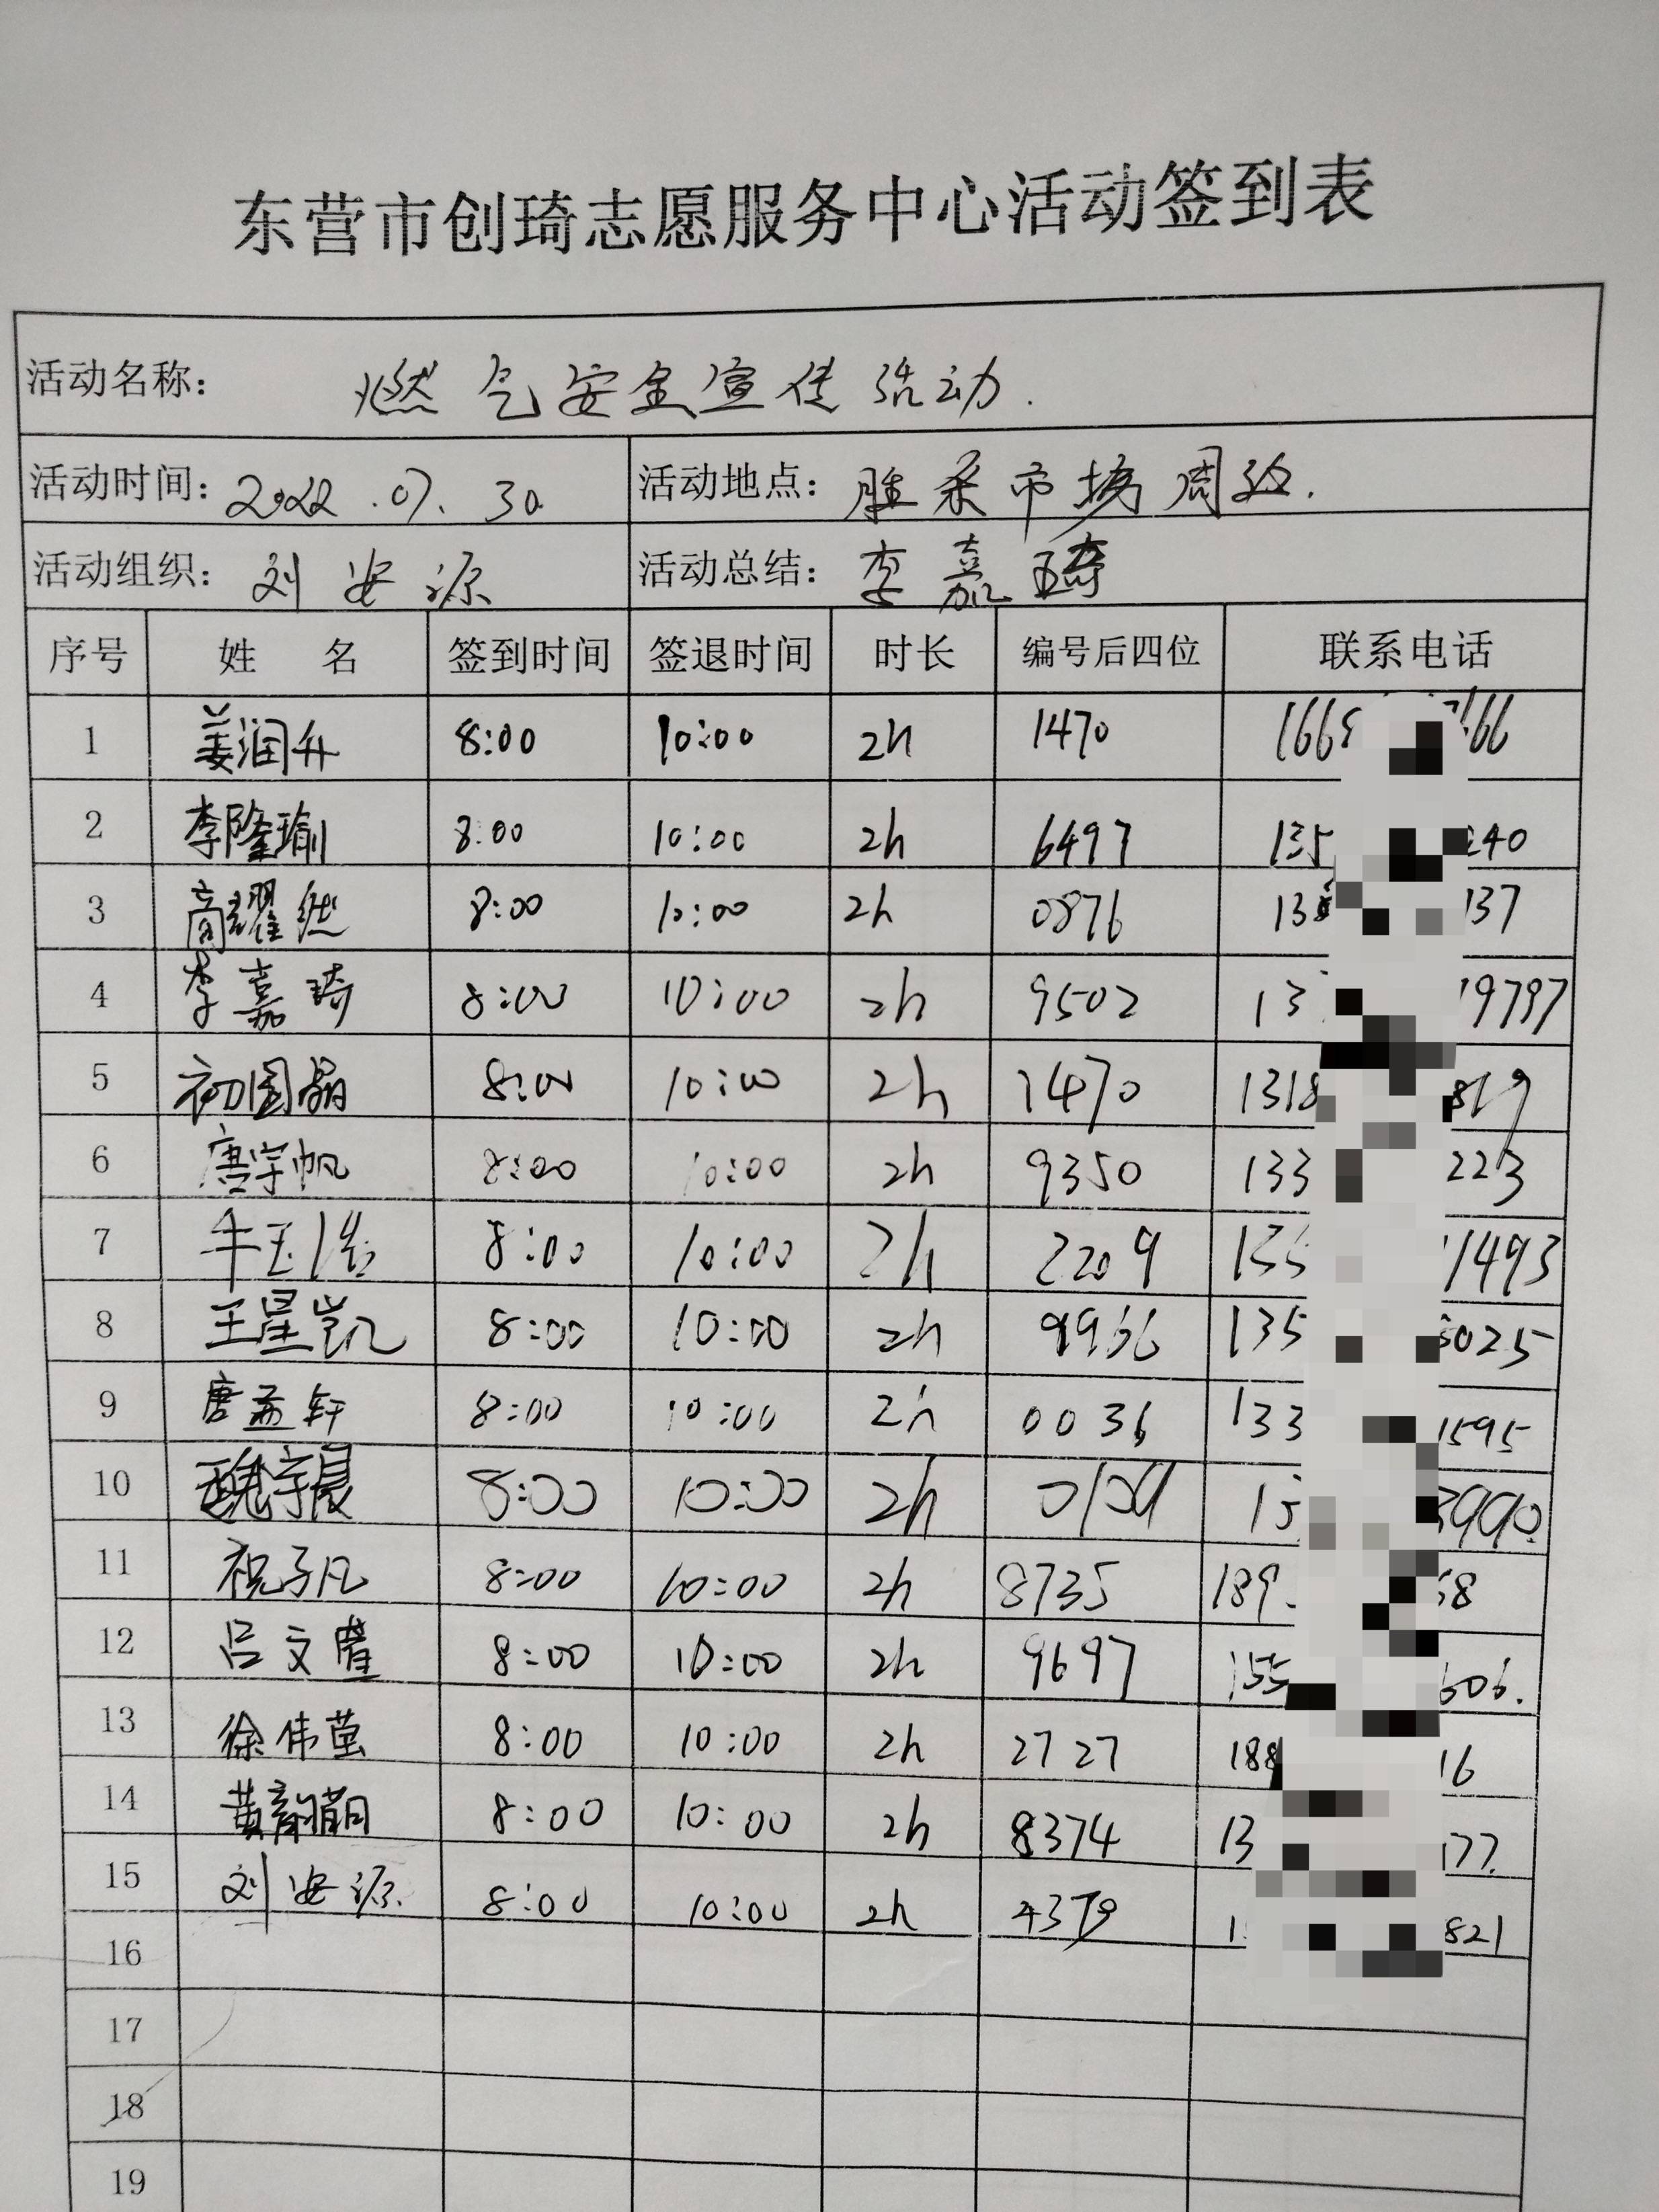 东营市创琦志愿服务中心活动签到表
活动名称： 燃气安全宣传活动.
活动时间：2022.07.30 活动地点：胜采市场周边.
活动组织：刘安源 活动总结：李嘉琦
序号 姓 名 签到时间 签退时间 时长 编号后四位 联系电话
1 姜润升 8:00 10:00 2h 1470 166 166
2 李隆瑜 8:00 10:00 2h 6497 135 240
3 高耀然 8:00 10:00 2h 0876 13 137
4 李嘉琦 8:00 10:00 2h 9502 13 19797
5 初国晶 8:00 10:00 2h 1470 1318 819
6 唐宇帆 8:00 10:00 2h 9350 133 223
7 牛玉浩 8:00 10:00 2h 2209 155 1493
8 王星凯 8:00 10:00 2h 9966 135 5025
9 唐孟轩 8:00 10:00 2h 0036 133 1595
10 魏宇晨 8:00 10:00 2h 0109 15 3990
11 祝子凡 8:00 10:00 2h 8735 189 58
12 吕文 8:00 10:00 2h 9697 155 606.
13 徐伟萤 8:00 10:00 2h 2727 188 16
14 黄韵 8:00 10:00 2h 8374 13 177.
15 刘安源 8:00 10:00 2h 4379 1 821
16
17
18
19